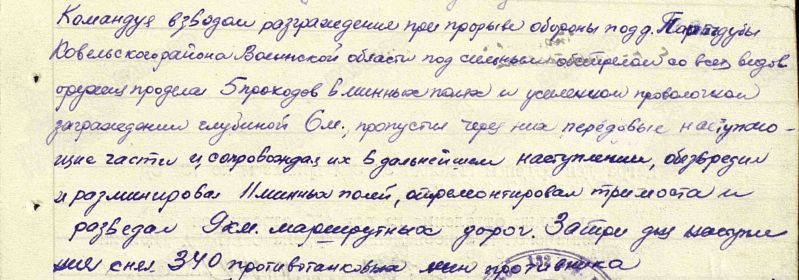 Командуя взводом разграждения при прорыве обороны под д.
Ковельского района Волынской области под сильным обстрелом со всех видов
оружия проделал 5 проходов в минных полях и усиленном проволочном
заграждении глубиной 6м., пропустил через них передовые наступаю-
щие части и сопровождая их в дальнейшем наступлении, обезвредил
и разминировал 11 минных полей, отремонтировал три моста и
разведал 9 км. маршрутных дорог. За три дня наступле
ния снял 340 противотанковых мин противника